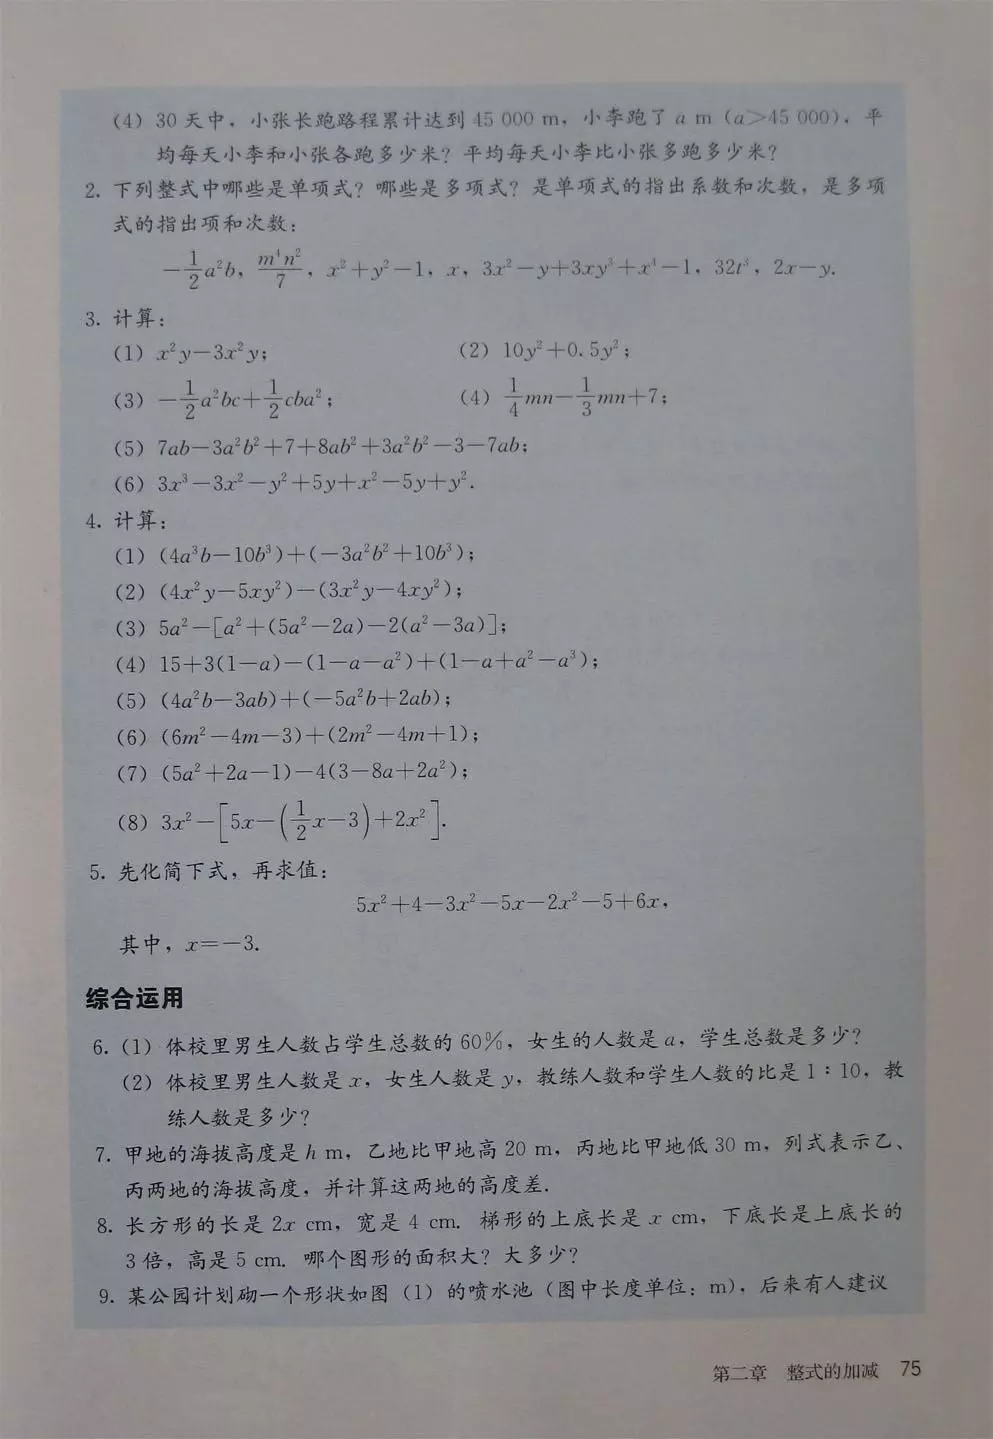 (4) 30 天中，小张长跑路程累计达到 45 000 m，小李跑了 a m (a>45 000)，平
均每天小李和小张各跑多少米？平均每天小李比小张多跑多少米？
2. 下列整式中哪些是单项式？哪些是多项式？是单项式的指出系数和次数，是多项
式的指出项和次数：
−1/2 a²b，m⁴n²/7，x²+y²−1，x，3x²−y+3xy³+x⁴−1，32t³，2x−y.
3. 计算：
(1) x²y−3x²y； (2) 10y²+0.5y²；
(3) −1/2 a²bc+1/2 cba²； (4) 1/4 mn−1/3 mn+7；
(5) 7ab−3a²b²+7+8ab²+3a²b²−3−7ab；
(6) 3x³−3x²−y²+5y+x²−5y+y².
4. 计算：
(1) (4a³b−10b³)+(−3a²b²+10b³)；
(2) (4x²y−5xy²)−(3x²y−4xy²)；
(3) 5a²−[a²+(5a²−2a)−2(a²−3a)]；
(4) 15+3(1−a)−(1−a−a²)+(1−a+a²−a³)；
(5) (4a²b−3ab)+(−5a²b+2ab)；
(6) (6m²−4m−3)+(2m²−4m+1)；
(7) (5a²+2a−1)−4(3−8a+2a²)；
(8) 3x²−[5x−(1/2 x−3)+2x²].
5. 先化简下式，再求值：
5x²+4−3x²−5x−2x²−5+6x，
其中，x=−3.
综合运用
6. (1) 体校里男生人数占学生总数的 60%，女生的人数是 a，学生总数是多少？
(2) 体校里男生人数是 x，女生人数是 y，教练人数和学生人数的比是 1∶10，教
练人数是多少？
7. 甲地的海拔高度是 h m，乙地比甲地高 20 m，丙地比甲地低 30 m，列式表示乙、
丙两地的海拔高度，并计算这两地的高度差.
8. 长方形的长是 2x cm，宽是 4 cm. 梯形的上底长是 x cm，下底长是上底长的
3 倍，高是 5 cm. 哪个图形的面积大？大多少？
9. 某公园计划砌一个形状如图（1）的喷水池（图中长度单位：m），后来有人建议
第二章 整式的加减 75